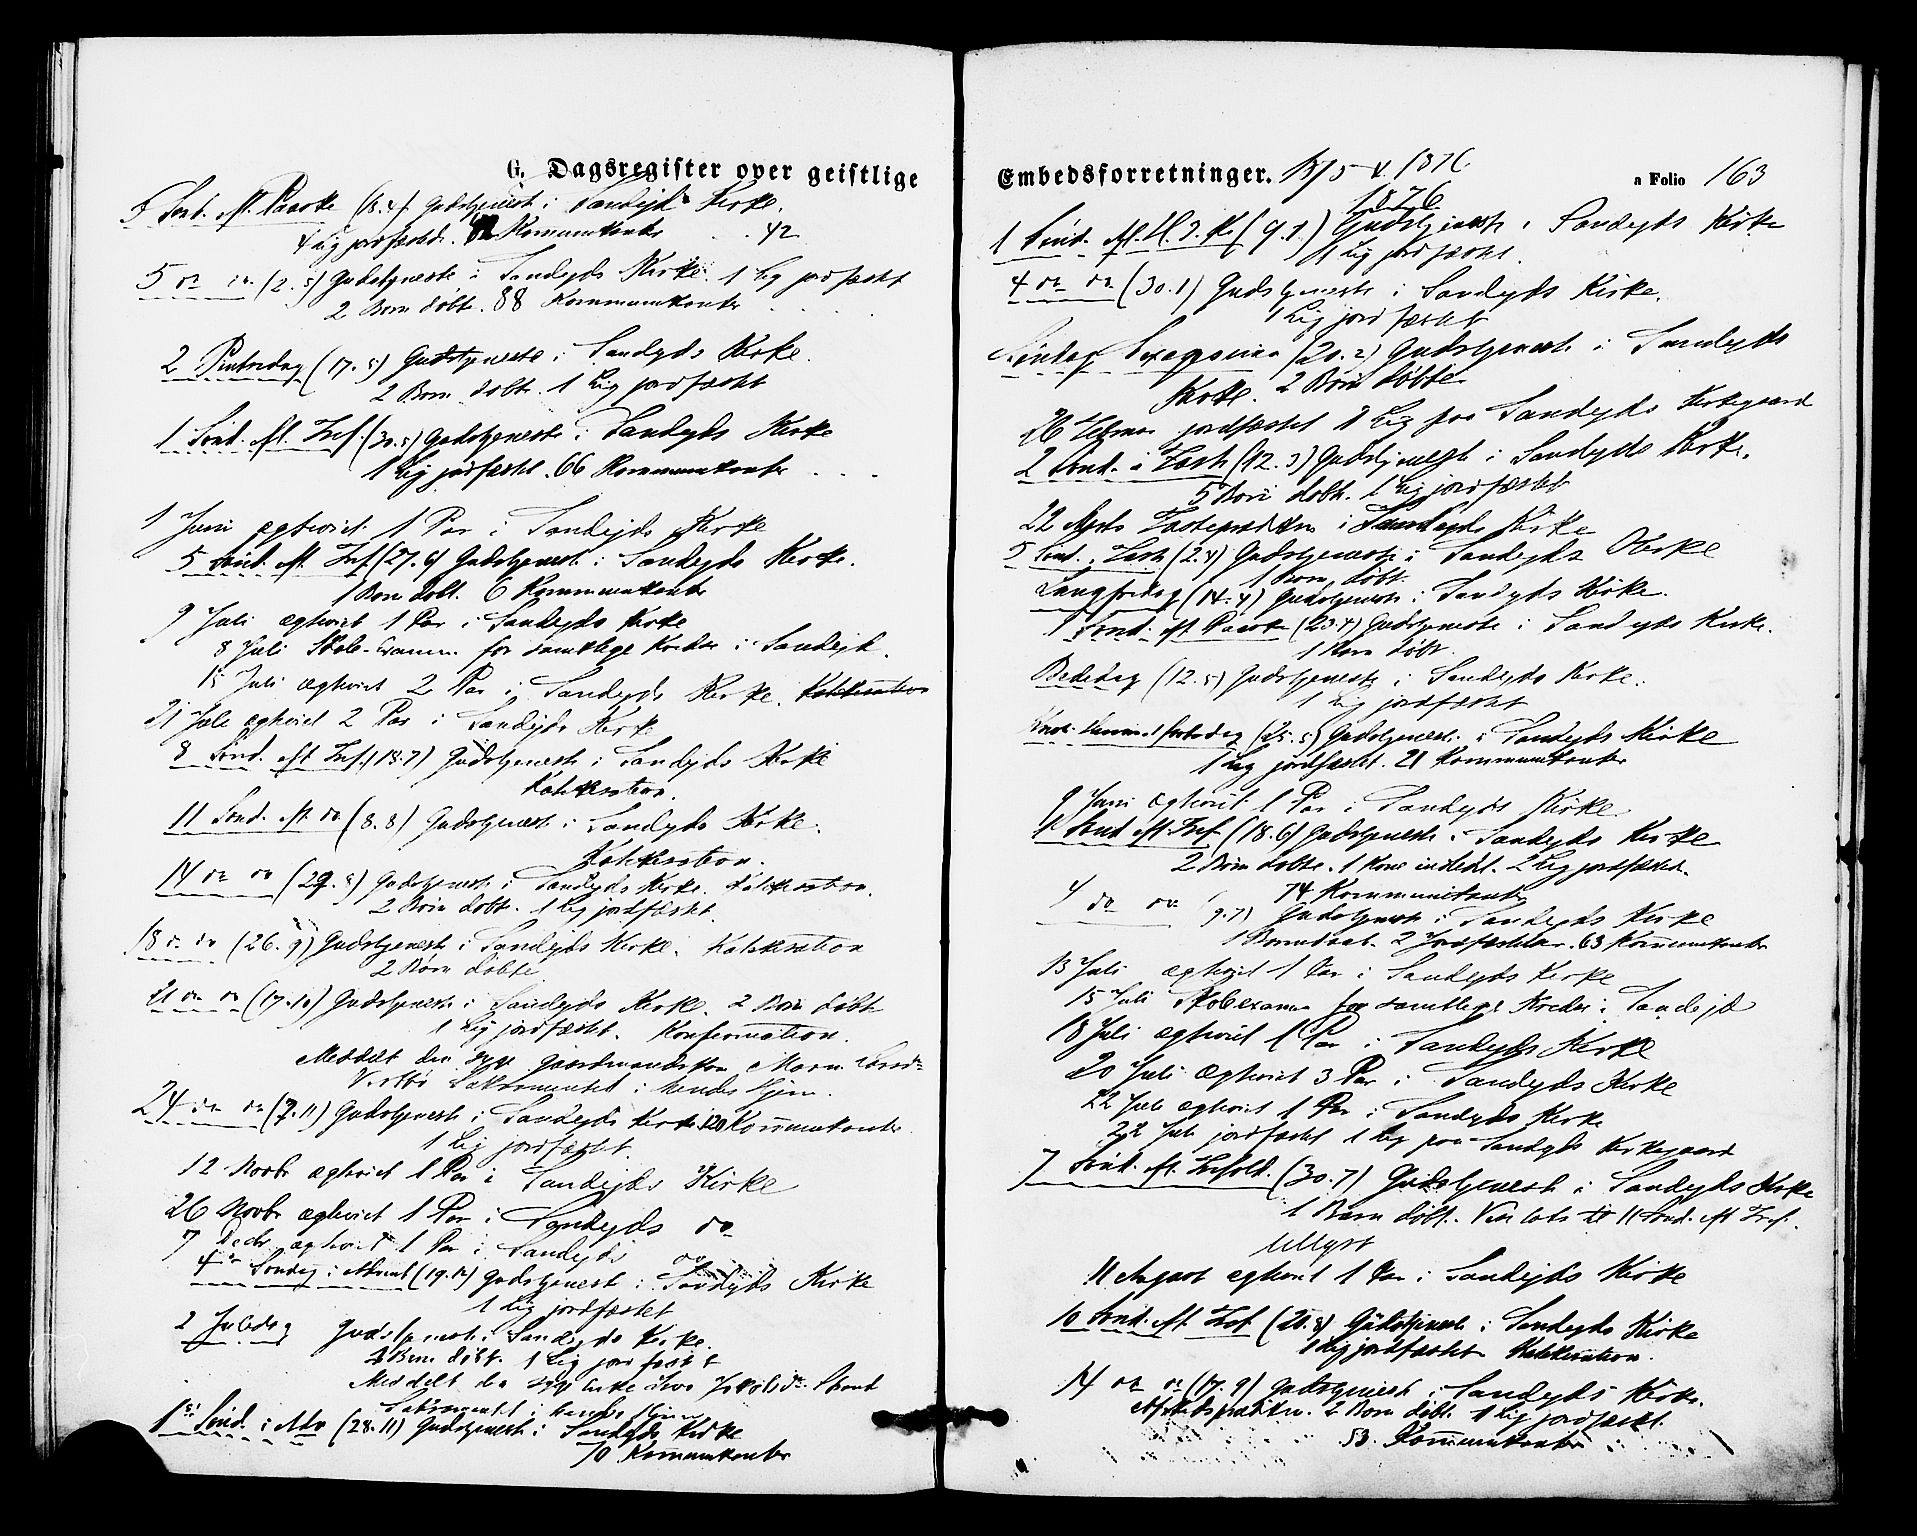 G. Dagsregister over geistlige
3 Sönd. Aft. Paaske (18.4). Gudstjeneste i Sandejds Kirke.
4 Lig jordfæstede. Kommunikanter . . 42
5 do do (2.5) Gudstjeneste i Sandejds Kirke. 1 Lig jordfæstet
2 Børn døbte. 88 Kommunikanter . . . .
2 Pintsedag (17.5) Gudstjeneste i Sandejds Kirke.
2 Børn døbte. 1 Lig jordfæstet
1 Sönd. Aft. Tref. (30.5) Gudstjeneste i Sandejds Kirke
1 Lig jordfæstet. 66 Kommunikanter . . .
1 Juni ægteviet 1 Par i Sandejds Kirke
5 Sönd. Aft. Tref (27.6) Gudstjeneste i Sandejds Kirke.
1 Barn døbt. 6 Kommunikanter
9 Juli ægteviet 1 Par i Sandejds Kirke
8 Juli Skole-Examen for samtlige Kredse i Sandejd.
15 Juli ægteviet 2 Par i Sandejds Kirke. Katekisation
21 Juli ægteviet 2 Par i Sandejds Kirke
8 Sönd. Aft Tref. (18.7) Gudstjeneste i Sandejds Kirke
Katekisation.
11 Sönd. Aft. do (8.8) Gudstjeneste i Sandejds Kirke.
Katekisation.
14 do do (29.8) Gudstjeneste i Sandejds Kirke. Katekisation.
2 Børn døbte. 1 Lig jordfæstet.
18 do do (26.9) Gudstjeneste i Sandejds Kirke. Katekisation
2 Børn døbte
21 do do (17.10) Gudstjeneste i Sandejds Kirke. 2 Børn døbte
1 Lig jordfæstet. Konfirmation.
Meddelt den syge Gaardmandskone
Sakramentet i hendes Hjem.
24 do do (7.11) Gudstjeneste i Sandejds Kirke 120 Kommunikanter.
1 Lig jordfæstet.
12 Novbr ægteviet 1 Par i Sandejds Kirke
26 Novbr ægteviet 1 Par i Sandejds do
7 Decbr ægteviet 1 Par i Sandejds do
4de Søndag i Advent (19.12) Gudstjeneste i Sandejds Kirke
1 Lig jordfæstet
2 Juledag Gudstjeneste i Sandejds Kirke.
Børn døbt. 1 Lig jordfæstet
Meddelt den syge Enke
Sakramentet i hendes Hjem
1ste Sönd. i Adv (28.11) Gudstjeneste i Sandejds Kirke
70 Kommunikanter
Embedsforretninger. 1876
a Folio 163
1876
1 Sönd. Aft. H. 3. K. (9.1) Gudstjeneste i Sandejds Kirke
1 Lig jordfæstet.
4 do do (30.1) Gudstjeneste i Sandejds Kirke.
1 Lig jordfæstet
Søndag Sexagesima (20.2) Gudstjeneste i Sandejds
Kirke. 2 Børn døbte
26 Februar jordfæstet 1 Lig paa Sandejds Kirkegaard
2 Sönd. i Faste (12.3) Gudstjeneste i Sandejds Kirke.
5 Børn døbte. 1 Lig jordfæstet
22 Marts Fasteprædiken i Sandejds Kirke
5 Sönd. i Faste (2.4) Gudstjeneste i Sandejds Kirke
1 Barn døbt.
Langfredag (14.4) Gudstjeneste i Sandejds Kirke.
1 Sönd. Aft Paaske (23.4) Gudstjeneste i Sandejds Kirke.
1 Barn døbt.
Bededag (12.5) Gudstjeneste i Sandejds Kirke.
1 Lig jordfæstet
Kristi Himmelfartsdag (25.5) Gudstjeneste i Sandejds Kirke
1 Lig jordfæstet. 21 Kommunikanter
9 Juni ægteviet 1 Par i Sandejds Kirke.
1 Sönd Aft. Tref. (18.6) Gudstjeneste i Sandejds Kirke
2 Børn døbte. 1 Kone indledt. 2 Lig jordfæstet.
74 Kommunikanter
4 do do (9.7) Gudstjeneste i Sandejds Kirke
1 Barnedaab. 2 Jordfæstelser. 63 Kommunikanter
13 Juli ægteviet 1 Par i Sandejds Kirke
15 Juli Skolexamen for samtlige Kredse i Sandejd
18 Juli ægteviet 1 Par i Sandejds Kirke
20 Juli ægteviet 3 Par i Sandejds Kirke
22 Juli ægteviet 1 Par i Sandejds Kirke
22 Juli jordfæstet 1 Lig paa Sandejds Kirkegaard
7 Sönd. Aft. Trefold. (30.7) Gudstjeneste i Sandejds Kirke
1 Barn døbt. til 11 Sönd. Aft Tref.
Utlyst
11 August ægteviet 1 Par i Sandejds Kirke
10 Sönd. Aft. Tref (20.8) Gudstjeneste i Sandejds Kirke
1 Lig jordfæstet. Katekisation.
14 do do (17.9) Gudstjeneste i Sandejds Kirke.
Afskedsprædiken. 2 Børn døbt. 1 Lig jordfæstet.
53. Kommunikanter